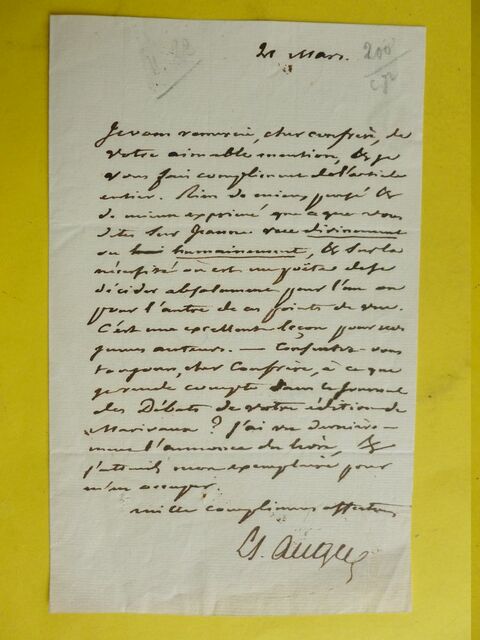 21 Mars.
200
Je vous remercie, cher confrère, de
votre aimable mention, & je
vous fais compliment de l'article
entier. Rien de mieux pensé &
de mieux exprimé que ce que vous
dites sur Jeanne vue divinement
ou humainement, & sur la
nécessité où est un poète de se
décider absolument pour l'un ou
pour l'autre de ces points de vue.
C'est une excellente leçon pour nos
jeunes auteurs. — Consentez-vous
toujours, cher Confrère, à ce que
je rende compte dans le Journal
des Débats de votre édition de
Marivaux ? J'ai vu dernière-
ment l'annonce du livre, &
j'attends mon exemplaire pour
m'en occuper.
mille compliments affectueux